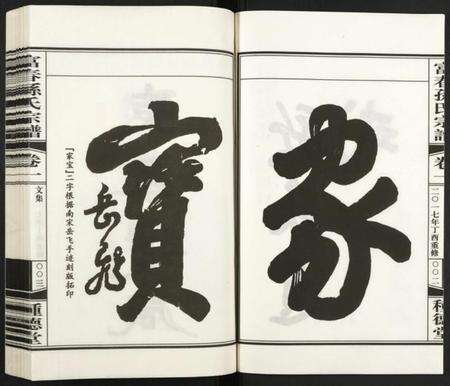 富春孫氏宗譜
卷一
二〇一七年丁酉重修
〇〇二
種德堂
家
寶
岳飛
『家宝』二字根据南宋岳飞手迹刻版拓印
富春孫氏宗譜
卷一
文集
〇〇三
種德堂